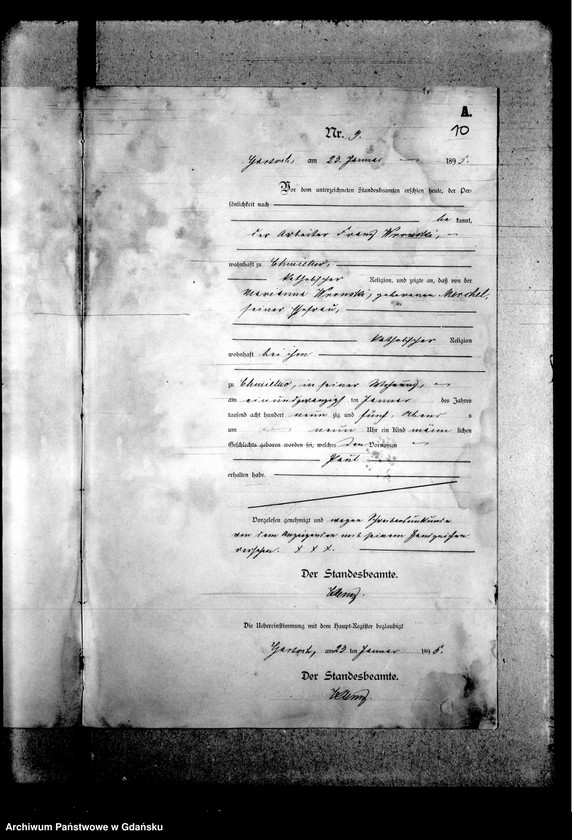 A.
10
Nr. 9.
am 23. Januar 1895.
Vor dem unterzeichneten Standesbeamten erschien heute, der Per-
sönlichkeit nach
be kannt,
der Arbeiter Franz Wronski,
wohnhaft zu Chmielno,
katholischer Religion, und zeigte an, daß von der
Marianna Wronski, geborenen Merchel,
seiner Ehefrau,
katholischer Religion
wohnhaft bei ihm
zu Chmielno, in seiner Wohnung,
am einundzwanzigsten Januar des Jahres
tausend acht hundert neunzig und fünf, Abend s
um neun Uhr ein Kind männ lichen
Geschlechts geboren worden sei, welches den Vornamen
Paul
erhalten habe.
Vorgelesen, genehmigt und wegen Schreibensunkunde
von dem Anzeigenden mit seinem Handzeichen
versehen. X X X.
Der Standesbeamte.
Die Uebereinstimmung mit dem Haupt-Register beglaubigt
am 23 ten Januar 1895.
Der Standesbeamte.
Archiwum Państwowe w Gdańsku